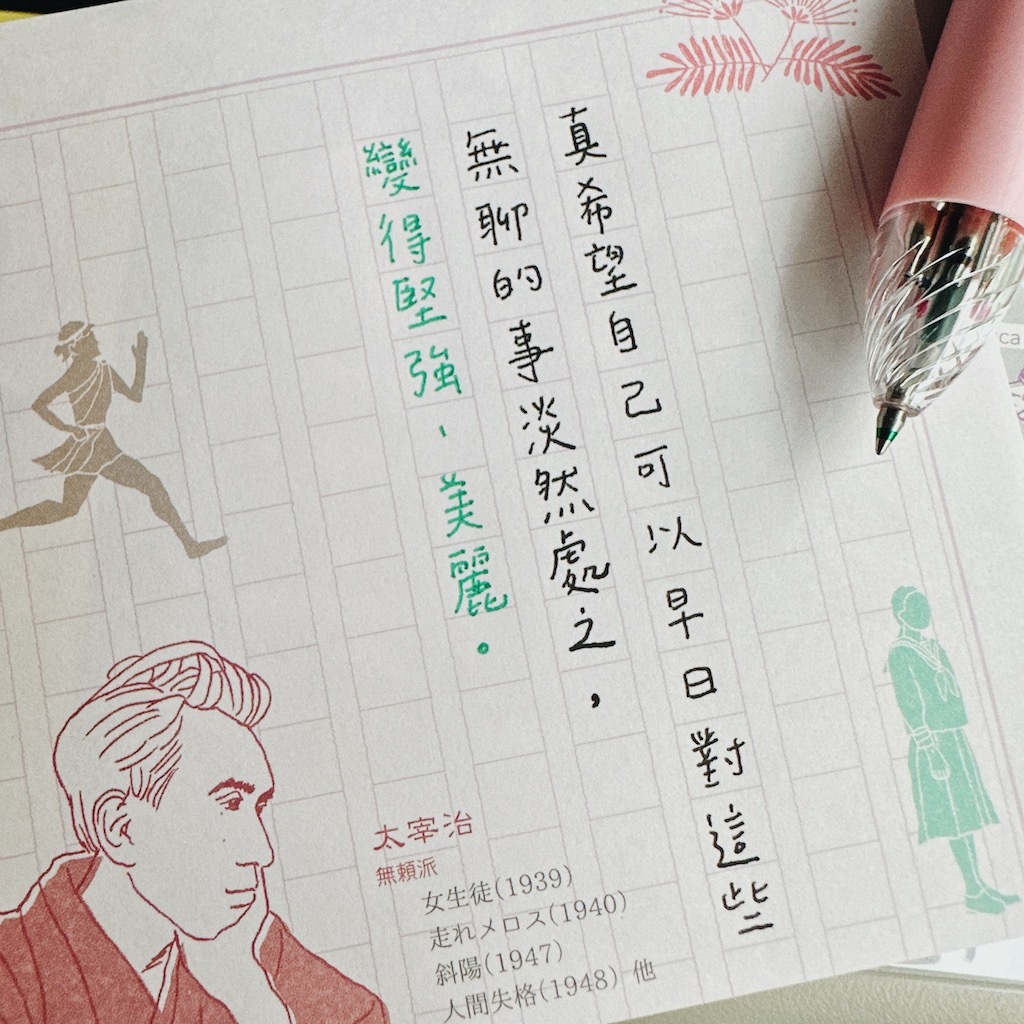 真希望自己可以早日對這些
無聊的事淡然處之，
變得堅強、美麗。
太宰治
無頼派
女生徒(1939)
走れメロス(1940)
斜陽(1947)
人間失格(1948) 他
ca